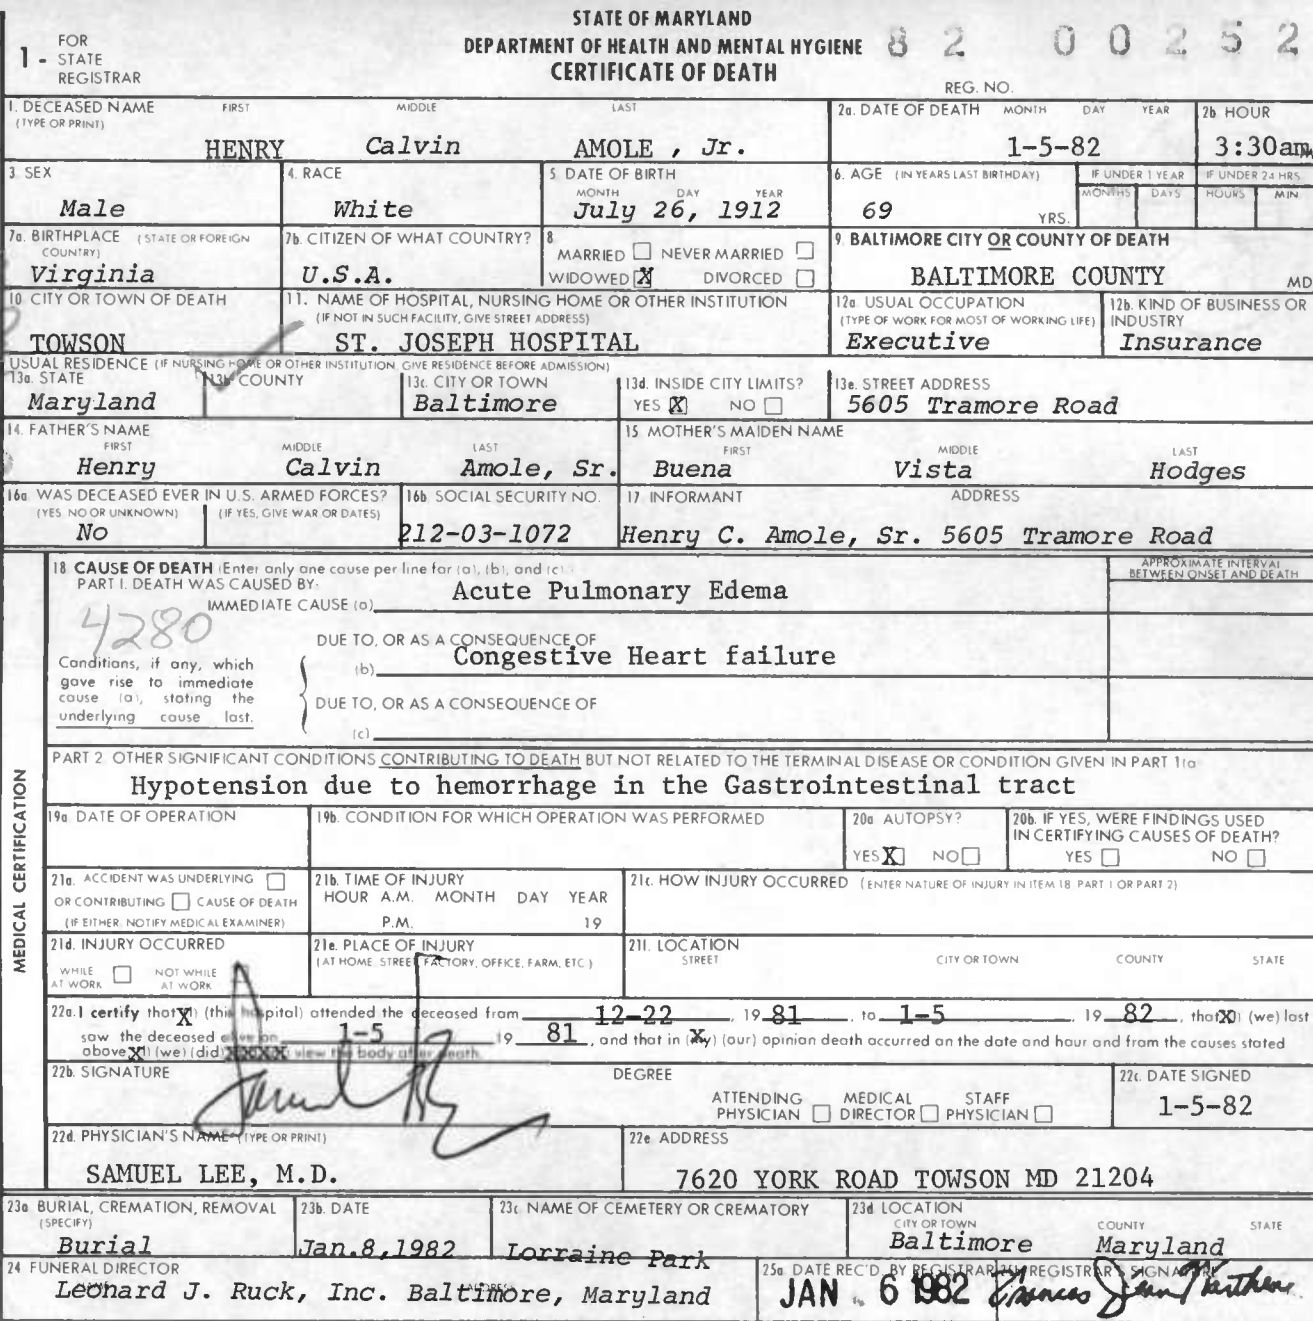 STATE OF MARYLAND
DEPARTMENT OF HEALTH AND MENTAL HYGIENE
CERTIFICATE OF DEATH
1 - FOR STATE REGISTRAR
82 00252
REG. NO.
1. DECEASED NAME (TYPE OR PRINT) FIRST MIDDLE LAST
HENRY Calvin AMOLE , Jr.
2a. DATE OF DEATH MONTH DAY YEAR
1-5-82
2b HOUR
3:30am
3 SEX
Male
4. RACE
White
5 DATE OF BIRTH
MONTH DAY YEAR
July 26, 1912
6. AGE (IN YEARS LAST BIRTHDAY)
69 YRS.
IF UNDER 1 YEAR
MONTHS DAYS
IF UNDER 24 HRS
HOURS MIN
7a. BIRTHPLACE (STATE OR FOREIGN COUNTRY)
Virginia
7b. CITIZEN OF WHAT COUNTRY?
U.S.A.
8
MARRIED NEVER MARRIED
WIDOWED X DIVORCED
9. BALTIMORE CITY OR COUNTY OF DEATH
BALTIMORE COUNTY MD
10 CITY OR TOWN OF DEATH
TOWSON
11. NAME OF HOSPITAL, NURSING HOME OR OTHER INSTITUTION
(IF NOT IN SUCH FACILITY, GIVE STREET ADDRESS)
ST. JOSEPH HOSPITAL
12a. USUAL OCCUPATION
(TYPE OF WORK FOR MOST OF WORKING LIFE)
Executive
12b. KIND OF BUSINESS OR INDUSTRY
Insurance
USUAL RESIDENCE (IF NURSING HOME OR OTHER INSTITUTION GIVE RESIDENCE BEFORE ADMISSION)
13a. STATE
Maryland
13b COUNTY
13c. CITY OR TOWN
Baltimore
13d. INSIDE CITY LIMITS?
YES X NO
13e. STREET ADDRESS
5605 Tramore Road
14. FATHER'S NAME
FIRST MIDDLE LAST
Henry Calvin Amole, Sr.
15 MOTHER'S MAIDEN NAME
FIRST MIDDLE LAST
Buena Vista Hodges
16a WAS DECEASED EVER IN U.S. ARMED FORCES?
(YES, NO OR UNKNOWN) (IF YES, GIVE WAR OR DATES)
No
16b SOCIAL SECURITY NO.
212-03-1072
17 INFORMANT ADDRESS
Henry C. Amole, Sr. 5605 Tramore Road
MEDICAL CERTIFICATION
18 CAUSE OF DEATH (Enter only one cause per line for (a), (b), and (c).
PART I. DEATH WAS CAUSED BY:
IMMEDIATE CAUSE (a) Acute Pulmonary Edema
APPROXIMATE INTERVAL BETWEEN ONSET AND DEATH
4280
DUE TO, OR AS A CONSEQUENCE OF
(b) Congestive Heart failure
Conditions, if any, which gave rise to immediate cause (a), stating the underlying cause last.
DUE TO, OR AS A CONSEQUENCE OF
(c)
PART 2 OTHER SIGNIFICANT CONDITIONS CONTRIBUTING TO DEATH BUT NOT RELATED TO THE TERMINAL DISEASE OR CONDITION GIVEN IN PART 1(a
Hypotension due to hemorrhage in the Gastrointestinal tract
19a DATE OF OPERATION
19b. CONDITION FOR WHICH OPERATION WAS PERFORMED
20a AUTOPSY?
YES X NO
20b. IF YES, WERE FINDINGS USED IN CERTIFYING CAUSES OF DEATH?
YES NO
21a. ACCIDENT WAS UNDERLYING
OR CONTRIBUTING CAUSE OF DEATH
(IF EITHER, NOTIFY MEDICAL EXAMINER)
21b. TIME OF INJURY
HOUR A.M. MONTH DAY YEAR
P.M. 19
21c. HOW INJURY OCCURRED (ENTER NATURE OF INJURY IN ITEM 18 PART 1 OR PART 2)
21d. INJURY OCCURRED
WHILE AT WORK NOT WHILE AT WORK
21e. PLACE OF INJURY
(AT HOME, STREET, FACTORY, OFFICE, FARM, ETC.)
21f. LOCATION
STREET CITY OR TOWN COUNTY STATE
22a. I certify that X (this hospital) attended the deceased from 12-22, 19 81, to 1-5, 19 82, that X (we) last
saw the deceased alive on 1-5 19 81, and that in (my) (our) opinion death occurred on the date and hour and from the causes stated
above X (we) (did) XXXX view the body after death.
22b. SIGNATURE DEGREE
ATTENDING PHYSICIAN MEDICAL DIRECTOR STAFF PHYSICIAN
22c. DATE SIGNED
1-5-82
22d. PHYSICIAN'S NAME (TYPE OR PRINT)
SAMUEL LEE, M.D.
22e ADDRESS
7620 YORK ROAD TOWSON MD 21204
23a BURIAL, CREMATION, REMOVAL (SPECIFY)
Burial
23b. DATE
Jan.8,1982
23c NAME OF CEMETERY OR CREMATORY
Lorraine Park
23d LOCATION
CITY OR TOWN COUNTY STATE
Baltimore Maryland
24 FUNERAL DIRECTOR
NAME ADDRESS
Leonard J. Ruck, Inc. Baltimore, Maryland
25a DATE REC'D. BY REGISTRAR
JAN. 6 1982
25b REGISTRAR'S SIGNATURE